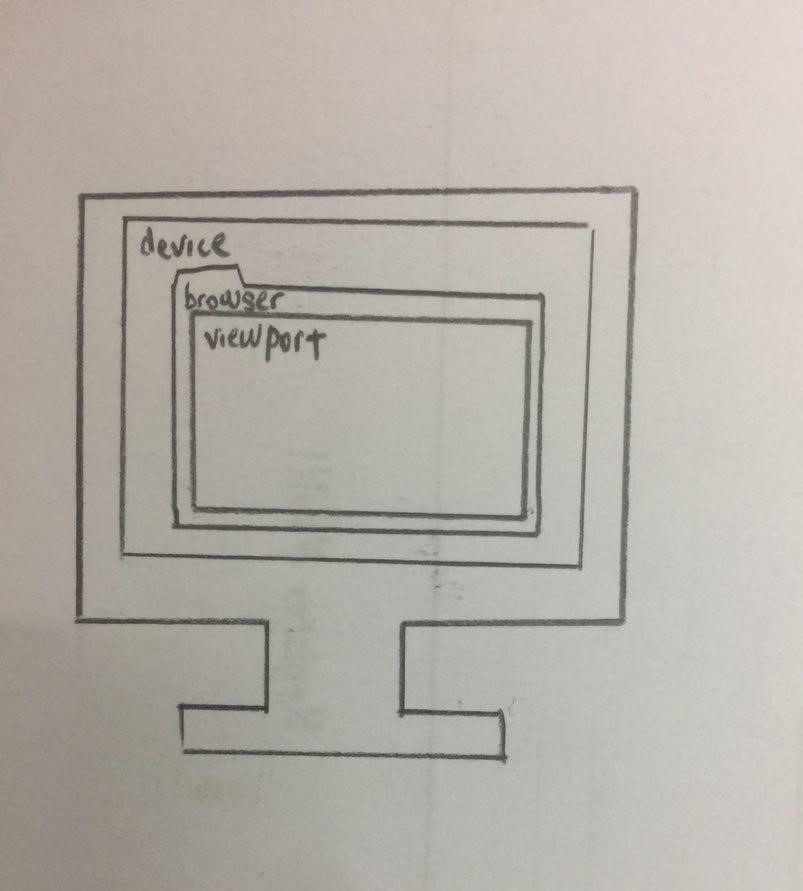 device
browser
viewport